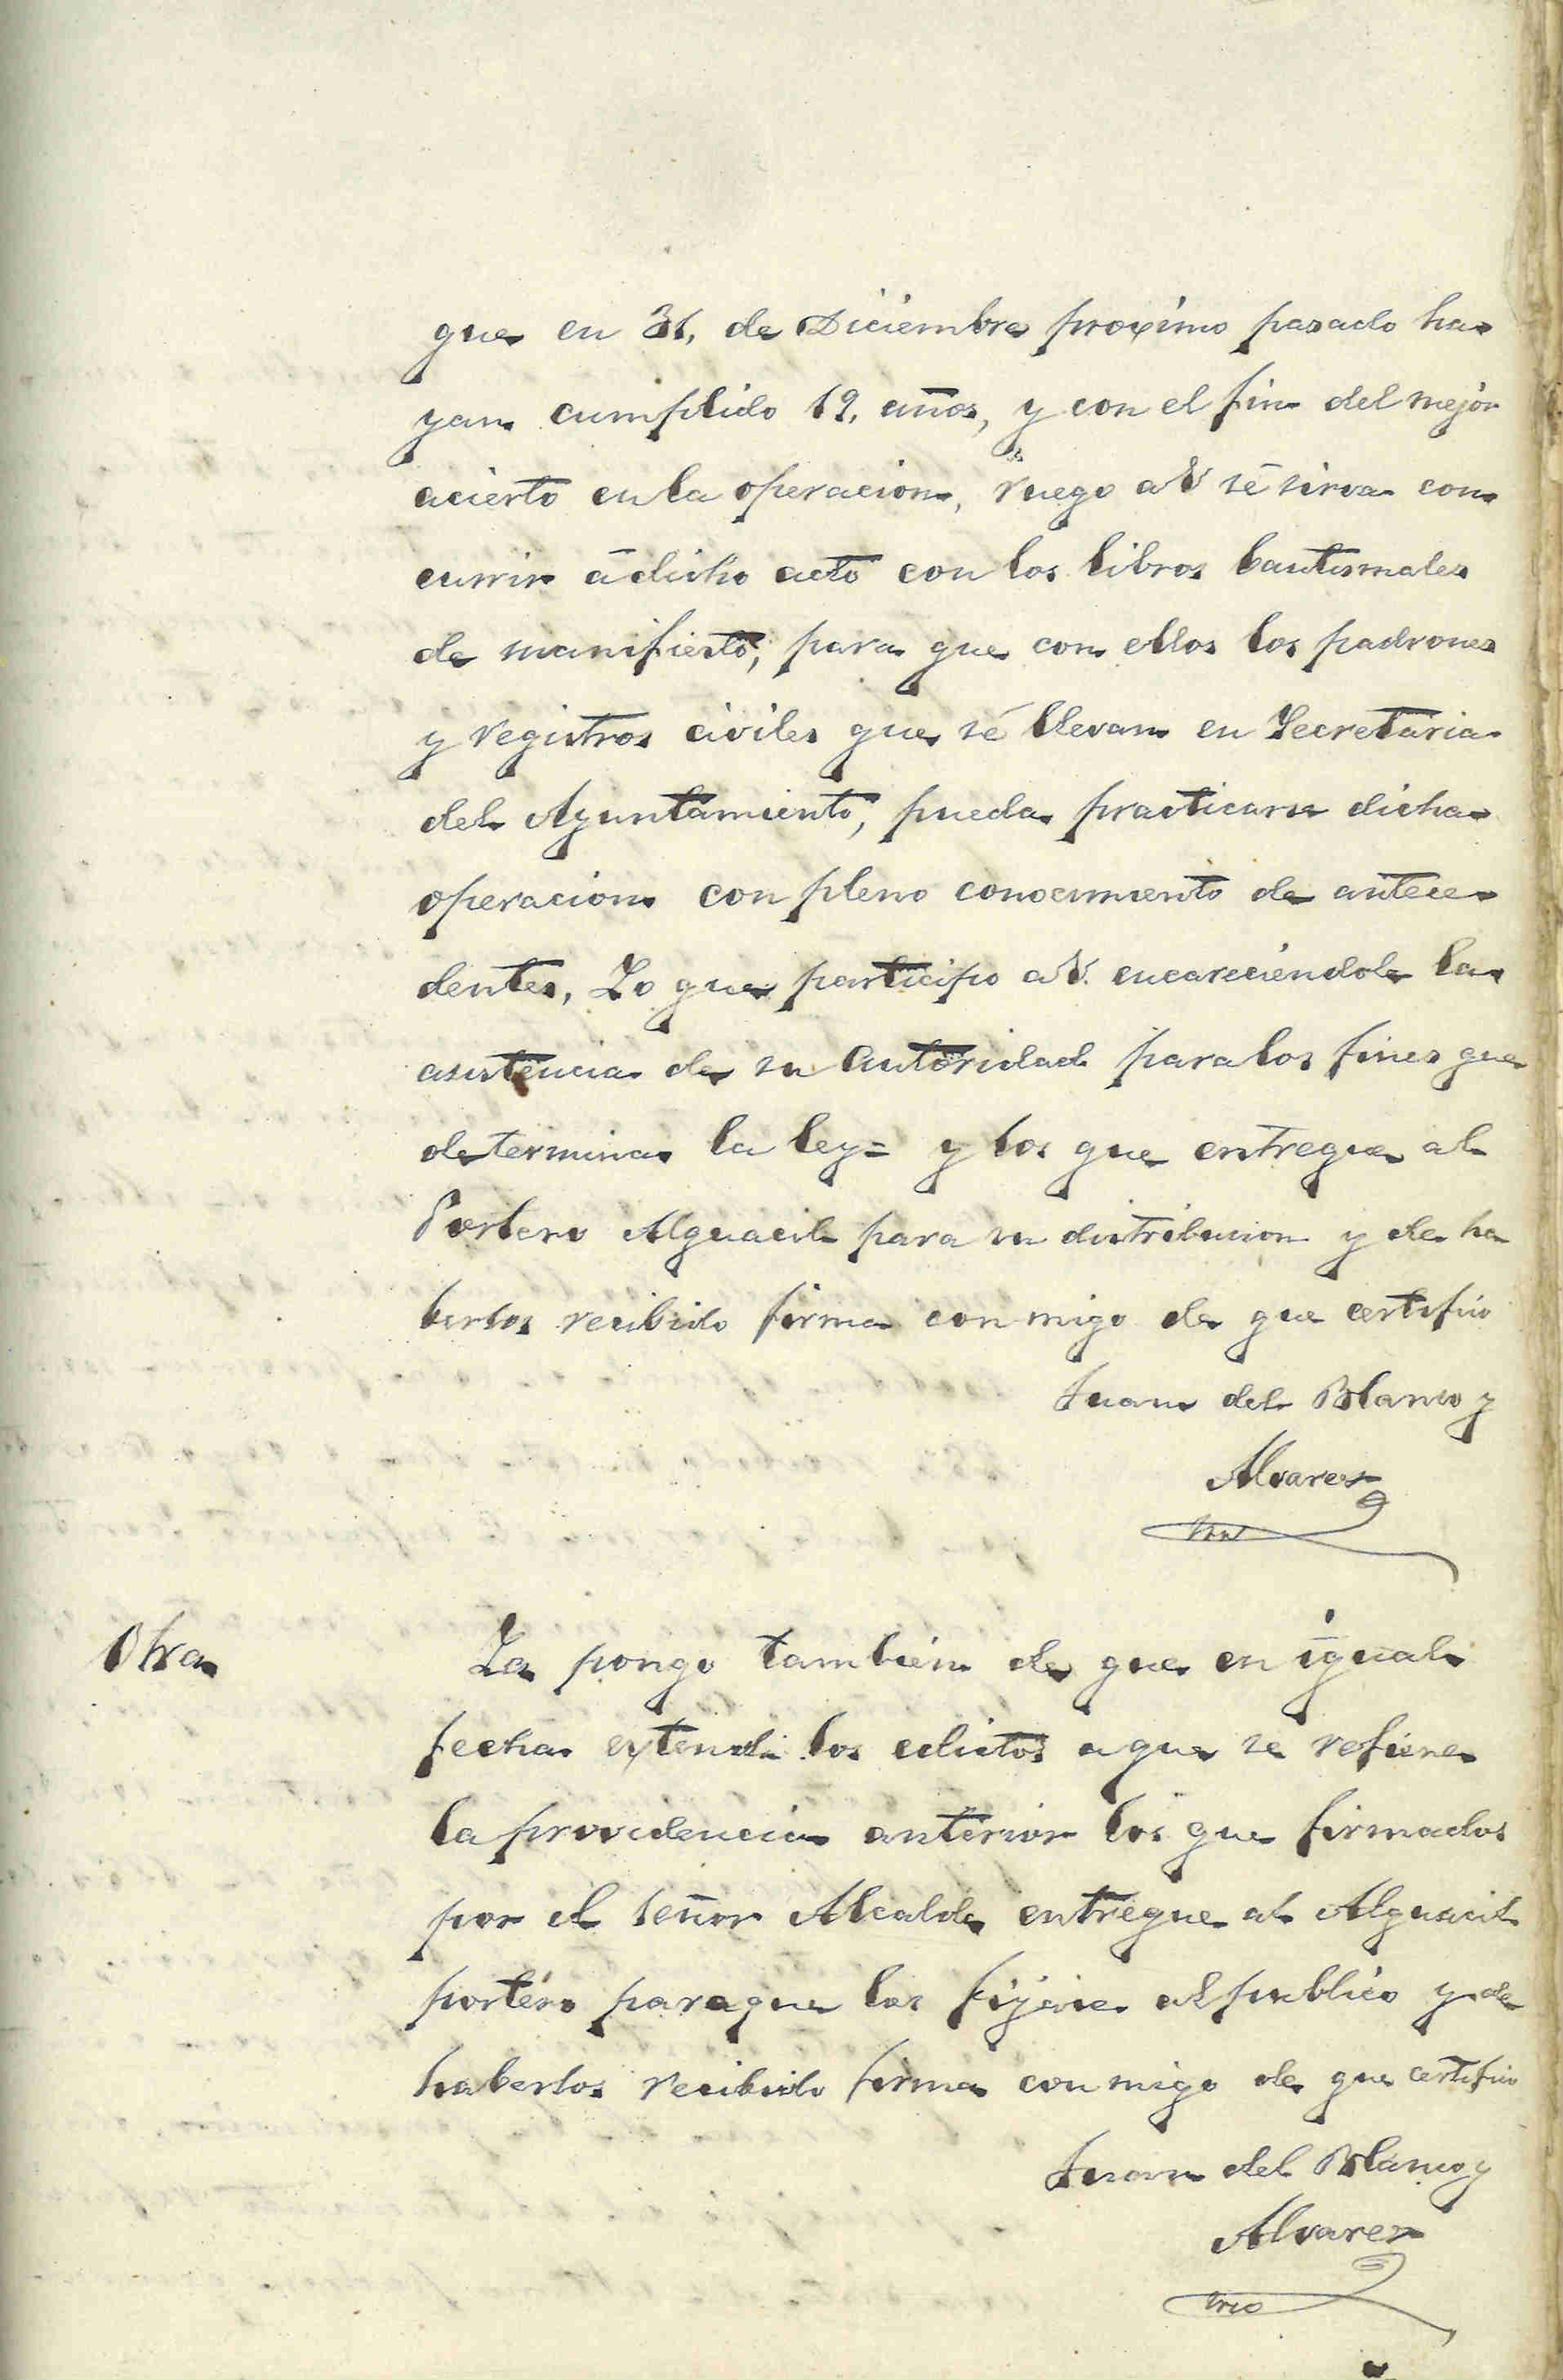 que en 31, de Diciembre proximo pasado ha-
yan cumplido 19, años, y con el fin del mejor
acierto en la operacion, ruego a V se sirva con-
currir á dicho acto con los libros bautismales
de manifiesto, para que con ellos los padrones
y registros civiles que sé llevan en Secretaria
del Ayuntamiento, pueda practicarse dicha
operacion con pleno conocimiento de antece-
dentes, Lo que participo a V. encareciendole la
asistencia de su Autoridad para los fines que
determina la ley= y los que entregue al
Portero Alguacil para su distribucion y de ha
berlos recibido firma con migo de que certifico
Juan del Blanco y
Alvarez
Otra
La pongo tambien de que en igual
fecha extendi los edictos a que se refiere
la providencia anterior los que firmados
por el señor Alcalde entregue al Alguacil
portero para que los fijase al publico y de
haberlos recibido firma con migo de que certifico
Juan del Blanco y
Alvarez
Srio